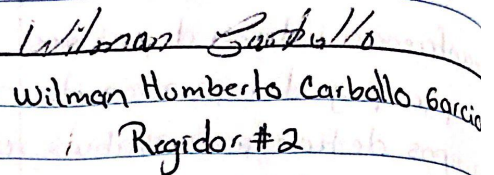 Wilman Carballo
Wilman Humberto Carballo Garcia
Regidor #2